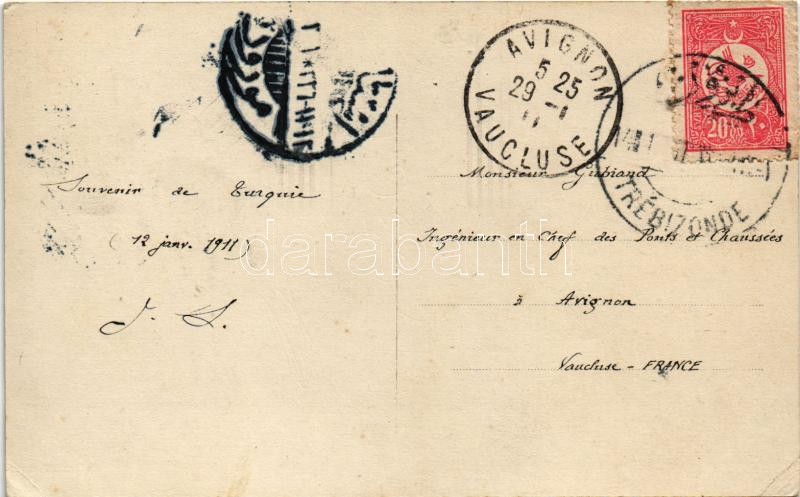 AVIGNON
5 25
29 -1
11
VAUCLUSE
TRÉBIZONDE
20
٢٠
Souvenir de Turquie
(12 janv. 1911)
J. S.
Monsieur Gubiand
Ingénieur en Chef des Ponts et Chaussées
à Avignon
Vaucluse - FRANCE
darabanth